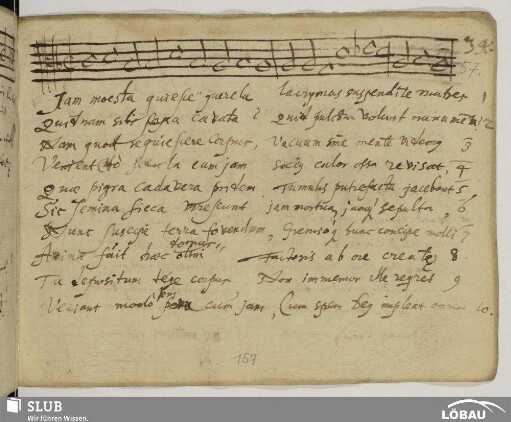 39.
57.
Jam moesta quiesce querela lacrymas suspendite matres 1
Quidnam sibi saxa cavata Quid pulchra volunt monumenta 2
Nam quod requiescere corpus, Vacuum sine mente videmq 3
Venient secula cum jam socig calor ossa revisat, 4
Quae pigra cadavera pridem tumulis putrefacta jacebant 5
Sic semina sicca virescunt jam mortua, jamq sepulta, 6
Nunc suscipe terra fovendum, Gremioq hunc concipe molli 7
corpus,
Animae fuit haec olim Factoris ab ore createq 8
Tu depositum tege corpus Non immemor ille requiret 9
Veniant modo tempora cum jam, Cum spem Deq impleat omnem 10.
157
SLUB
Wir führen Wissen.
LÖBAU